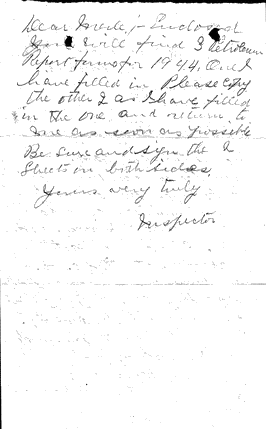 Dear Merle; - Enclosed
You will find 3 Petroleum
Report forms for 1944. One I
have filled in Please copy
the other 2 as I have filled
in the one and return to
me as soon as possible
Be sure and sign the 2
Sheets on both sides
Yours very truly
Inspector